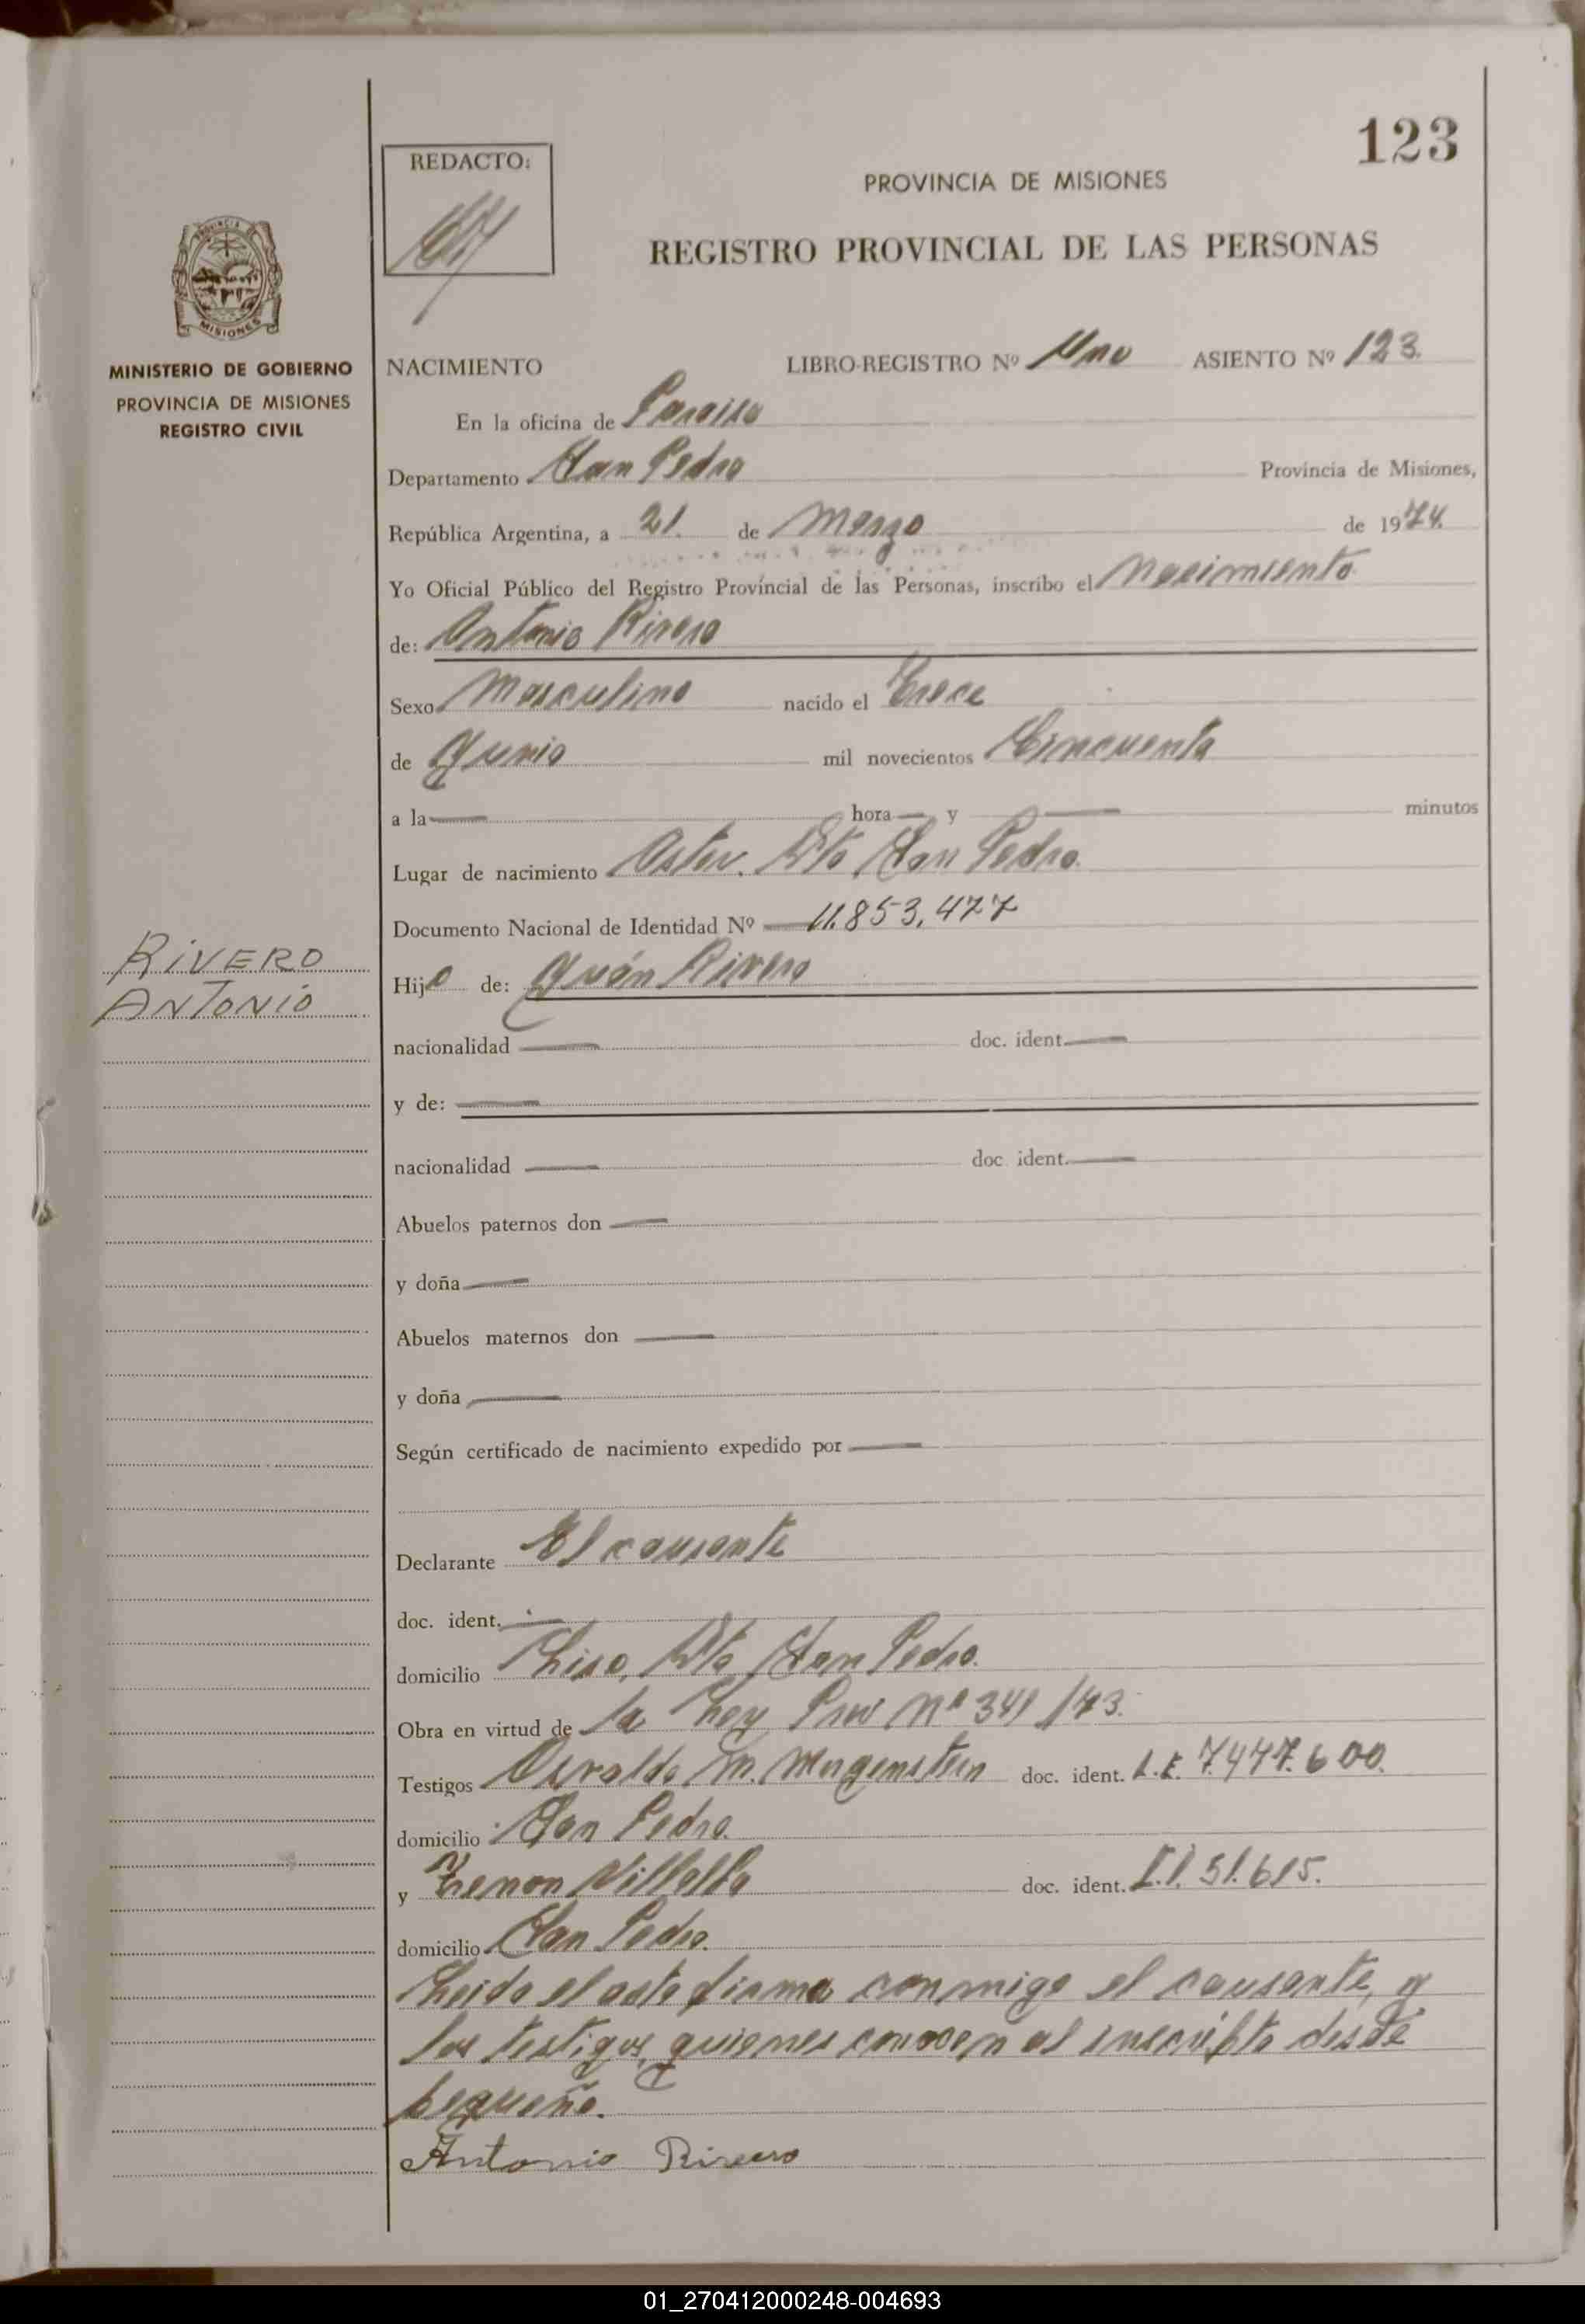 123
REDACTO:
PROVINCIA DE MISIONES
REGISTRO PROVINCIAL DE LAS PERSONAS
PROVINCIA DE
MISIONES
MINISTERIO DE GOBIERNO
PROVINCIA DE MISIONES
REGISTRO CIVIL
NACIMIENTO LIBRO-REGISTRO Nº Uno ASIENTO Nº 123.
En la oficina de Paraiso
Departamento San Pedro Provincia de Misiones,
República Argentina, a 21. de Marzo de 1974.
Yo Oficial Público del Registro Provincial de las Personas, inscribo el Nacimiento
de: Antonio Rivero
Sexo Masculino nacido el Trece
de Junio mil novecientos Cincuenta
a la — hora — y — minutos
Lugar de nacimiento Dto San Pedro.
Documento Nacional de Identidad Nº — 11.853.477
RIVERO
ANTONIO
Hijo de: Juán Rivero
nacionalidad — doc. ident. —
y de: —
nacionalidad — doc. ident. —
Abuelos paternos don —
y doña —
Abuelos maternos don —
y doña —
Según certificado de nacimiento expedido por —
Declarante El causante
doc. ident. —
domicilio Dto San Pedro.
Obra en virtud de la Ley Prov Nº 341/73.
Testigos Osvaldo M. Morgenstern doc. ident. L.E. 7.447.600.
domicilio San Pedro.
y Zenon Villalba doc. ident. C.I. 51.615.
domicilio San Pedro.
Leida el acta firma conmigo el causante, y
los testigos, quienes conocen al inscripto desde
pequeño.
Antonio Rivero
01_270412000248-004693